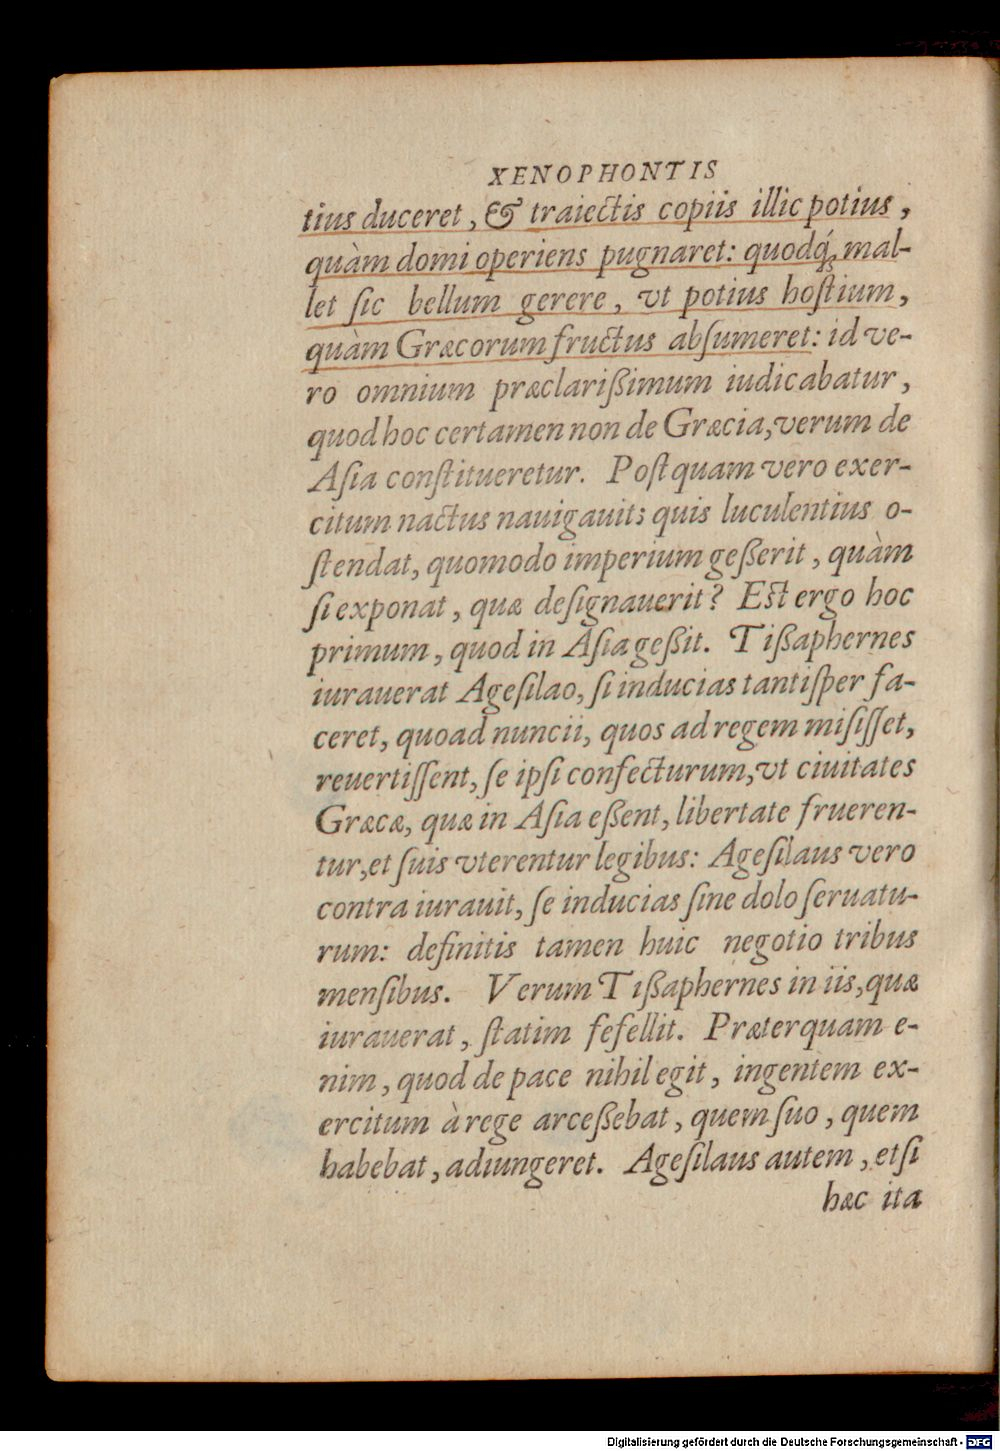 XENOPHONTIS
tius duceret, & traiectis copiis illic potius,
quàm domi operiens pugnaret: quodq́; mal-
let ſic bellum gerere, vt potius hoſtium,
quàm Græcorum fructus abſumeret: id ve-
ro omnium præclarißimum iudicabatur,
quod hoc certamen non de Græcia, verum de
Aſia conſtitueretur. Poſtquam vero exer-
citum nactus nauigauit; quis luculentius o-
ſtendat, quomodo imperium geßerit, quàm
ſi exponat, quæ deſignauerit? Est ergo hoc
primum, quod in Aſia geßit. Tißaphernes
iurauerat Ageſilao, ſi inducias tantiſper fa-
ceret, quoad nuncii, quos ad regem miſiſſet,
reuertiſſent, ſe ipſi confecturum, vt ciuitates
Græcæ, quæ in Aſia eßent, libertate frueren-
tur, et ſuis vterentur legibus: Ageſilaus vero
contra iurauit, ſe inducias ſine dolo ſeruatu-
rum: definitis tamen huic negotio tribus
menſibus. Verum Tißaphernes in iis, quæ
iurauerat, ſtatim fefellit. Præterquam e-
nim, quod de pace nihil egit, ingentem ex-
ercitum à rege arceßebat, quem ſuo, quem
habebat, adiungeret. Ageſilaus autem, etſi
hæc ita
Digitalisierung gefördert durch die Deutsche Forschungsgemeinschaft - DFG